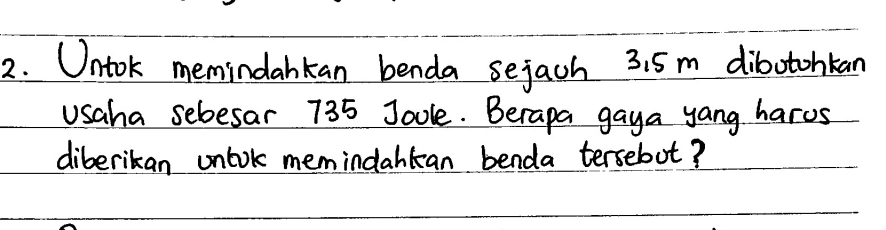 2. Untuk memindahkan benda sejauh 3,5 m dibutuhkan
usaha sebesar 735 Joule. Berapa gaya yang harus
diberikan untuk memindahkan benda tersebut?